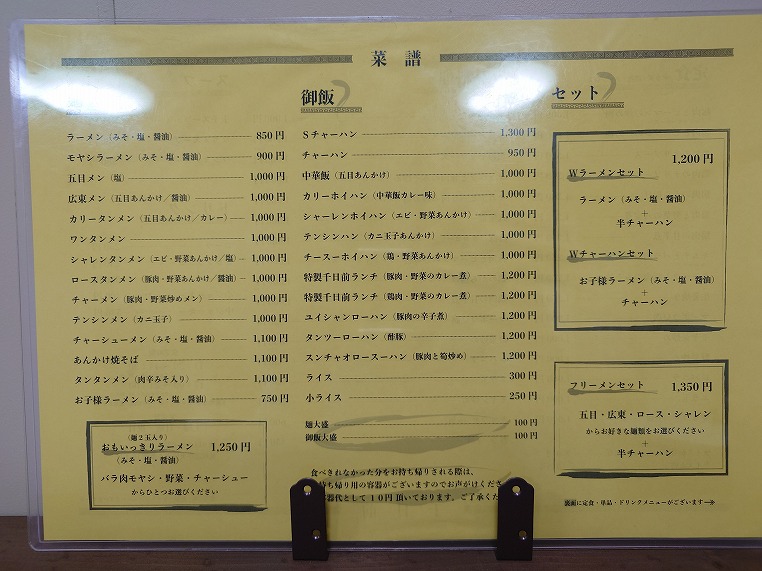 菜譜
ラーメン（みそ・塩・醤油） 850円
モヤシラーメン（みそ・塩・醤油） 900円
五目メン（塩） 1,000円
広東メン（五目あんかけ／醤油） 1,000円
カリータンメン（五目あんかけ／カレー） 1,000円
ワンタンメン 1,000円
シャレンタンメン（エビ・野菜あんかけ／塩） 1,000円
ロースタンメン（豚肉・野菜あんかけ／醤油） 1,000円
チャーメン（豚肉・野菜炒めメン） 1,000円
テンシンメン（カニ玉子） 1,000円
チャーシューメン（みそ・塩・醤油） 1,100円
あんかけ焼そば 1,100円
タンタンメン（肉辛みそ入り） 1,100円
お子様ラーメン（みそ・塩・醤油） 750円
（麺２玉入り）
おもいっきりラーメン 1,250円
（みそ・塩・醤油）
バラ肉モヤシ・野菜・チャーシュー
からひとつお選びください
御飯
Sチャーハン 1,300円
チャーハン 950円
中華飯（五目あんかけ） 1,000円
カリーホイハン（中華飯カレー味） 1,000円
シャーレンホイハン（エビ・野菜あんかけ） 1,000円
テンシンハン（カニ玉子あんかけ） 1,000円
チースーホイハン（鶏・野菜あんかけ） 1,000円
特製千日前ランチ（豚肉・野菜のカレー煮） 1,200円
特製千日前ランチ（鶏肉・野菜のカレー煮） 1,200円
ユイシャンローハン（豚肉の辛子煮） 1,200円
タンツーローハン（酢豚） 1,200円
スンチャオロースーハン（豚肉と筍炒め） 1,200円
ライス 300円
小ライス 250円
麺大盛 100円
御飯大盛 100円
食べきれなかった分をお持ち帰りされる際は、
持ち帰り用の容器がございますのでお声がけくださ
容器代として１０円頂いております。ご了承くだ
セット
1,200円
Wラーメンセット
ラーメン（みそ・塩・醤油）
＋
半チャーハン
Wチャーハンセット
お子様ラーメン（みそ・塩・醤油）
＋
チャーハン
フリーメンセット 1,350円
五目・広東・ロース・シャレン
からお好きな麺類をお選びください
＋
半チャーハン
裏面に定食・単品・ドリンクメニューがございます→